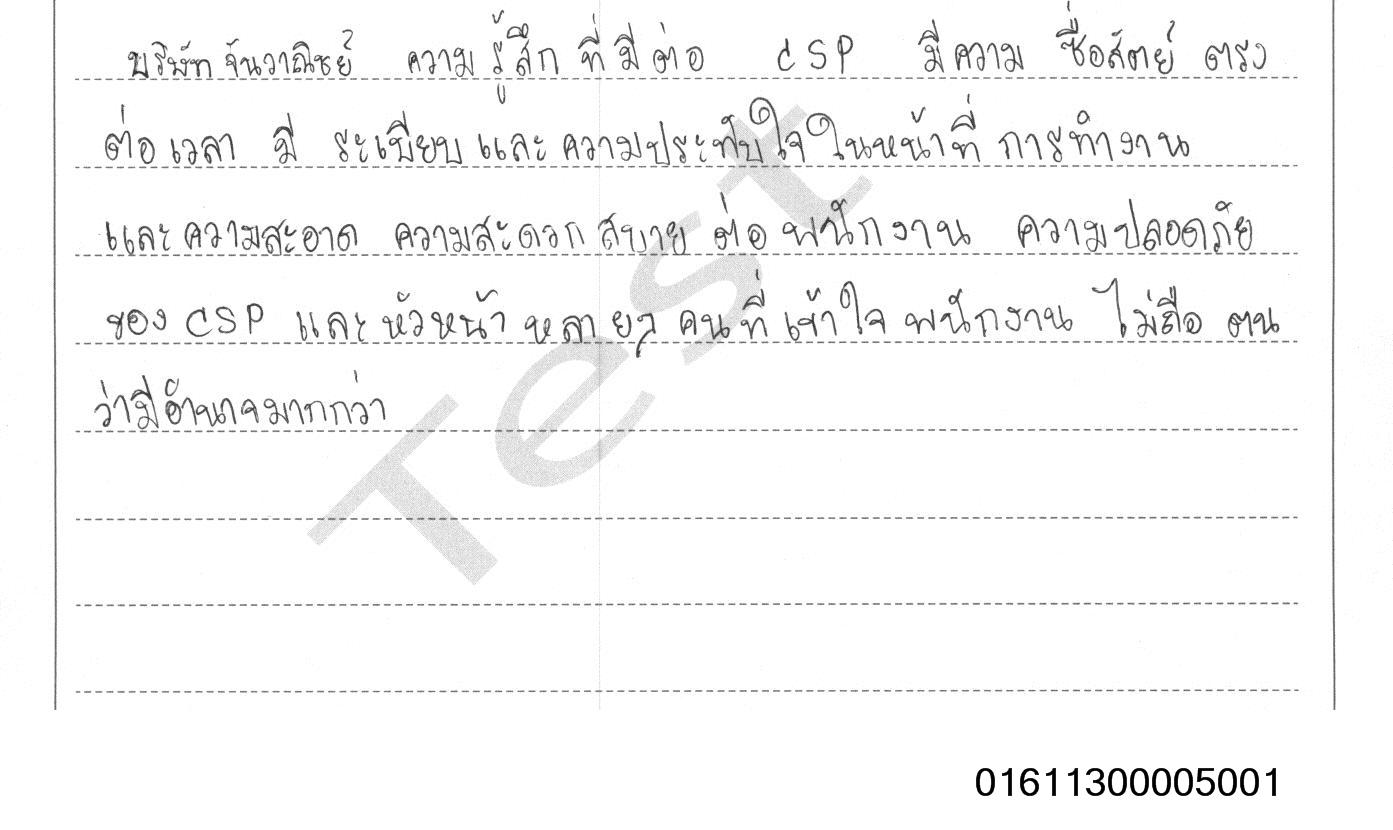 บริษัทจันวาณิชย์ ความรู้สึกที่มีต่อ CSP มีความ ซื่อสัตย์ ตรง
ต่อเวลา มี ระเบียบและความประทับใจในหน้าที่ การทำงาน
และความสะอาด ความสะดวกสบาย ต่อ พนักงาน ความปลอดภัย
ของ CSP และหัวหน้า หลายๆ คนที่เข้าใจ พนักงาน ไม่ถือ ตน
ว่ามีอำนาจมากกว่า
Test
01611300005001